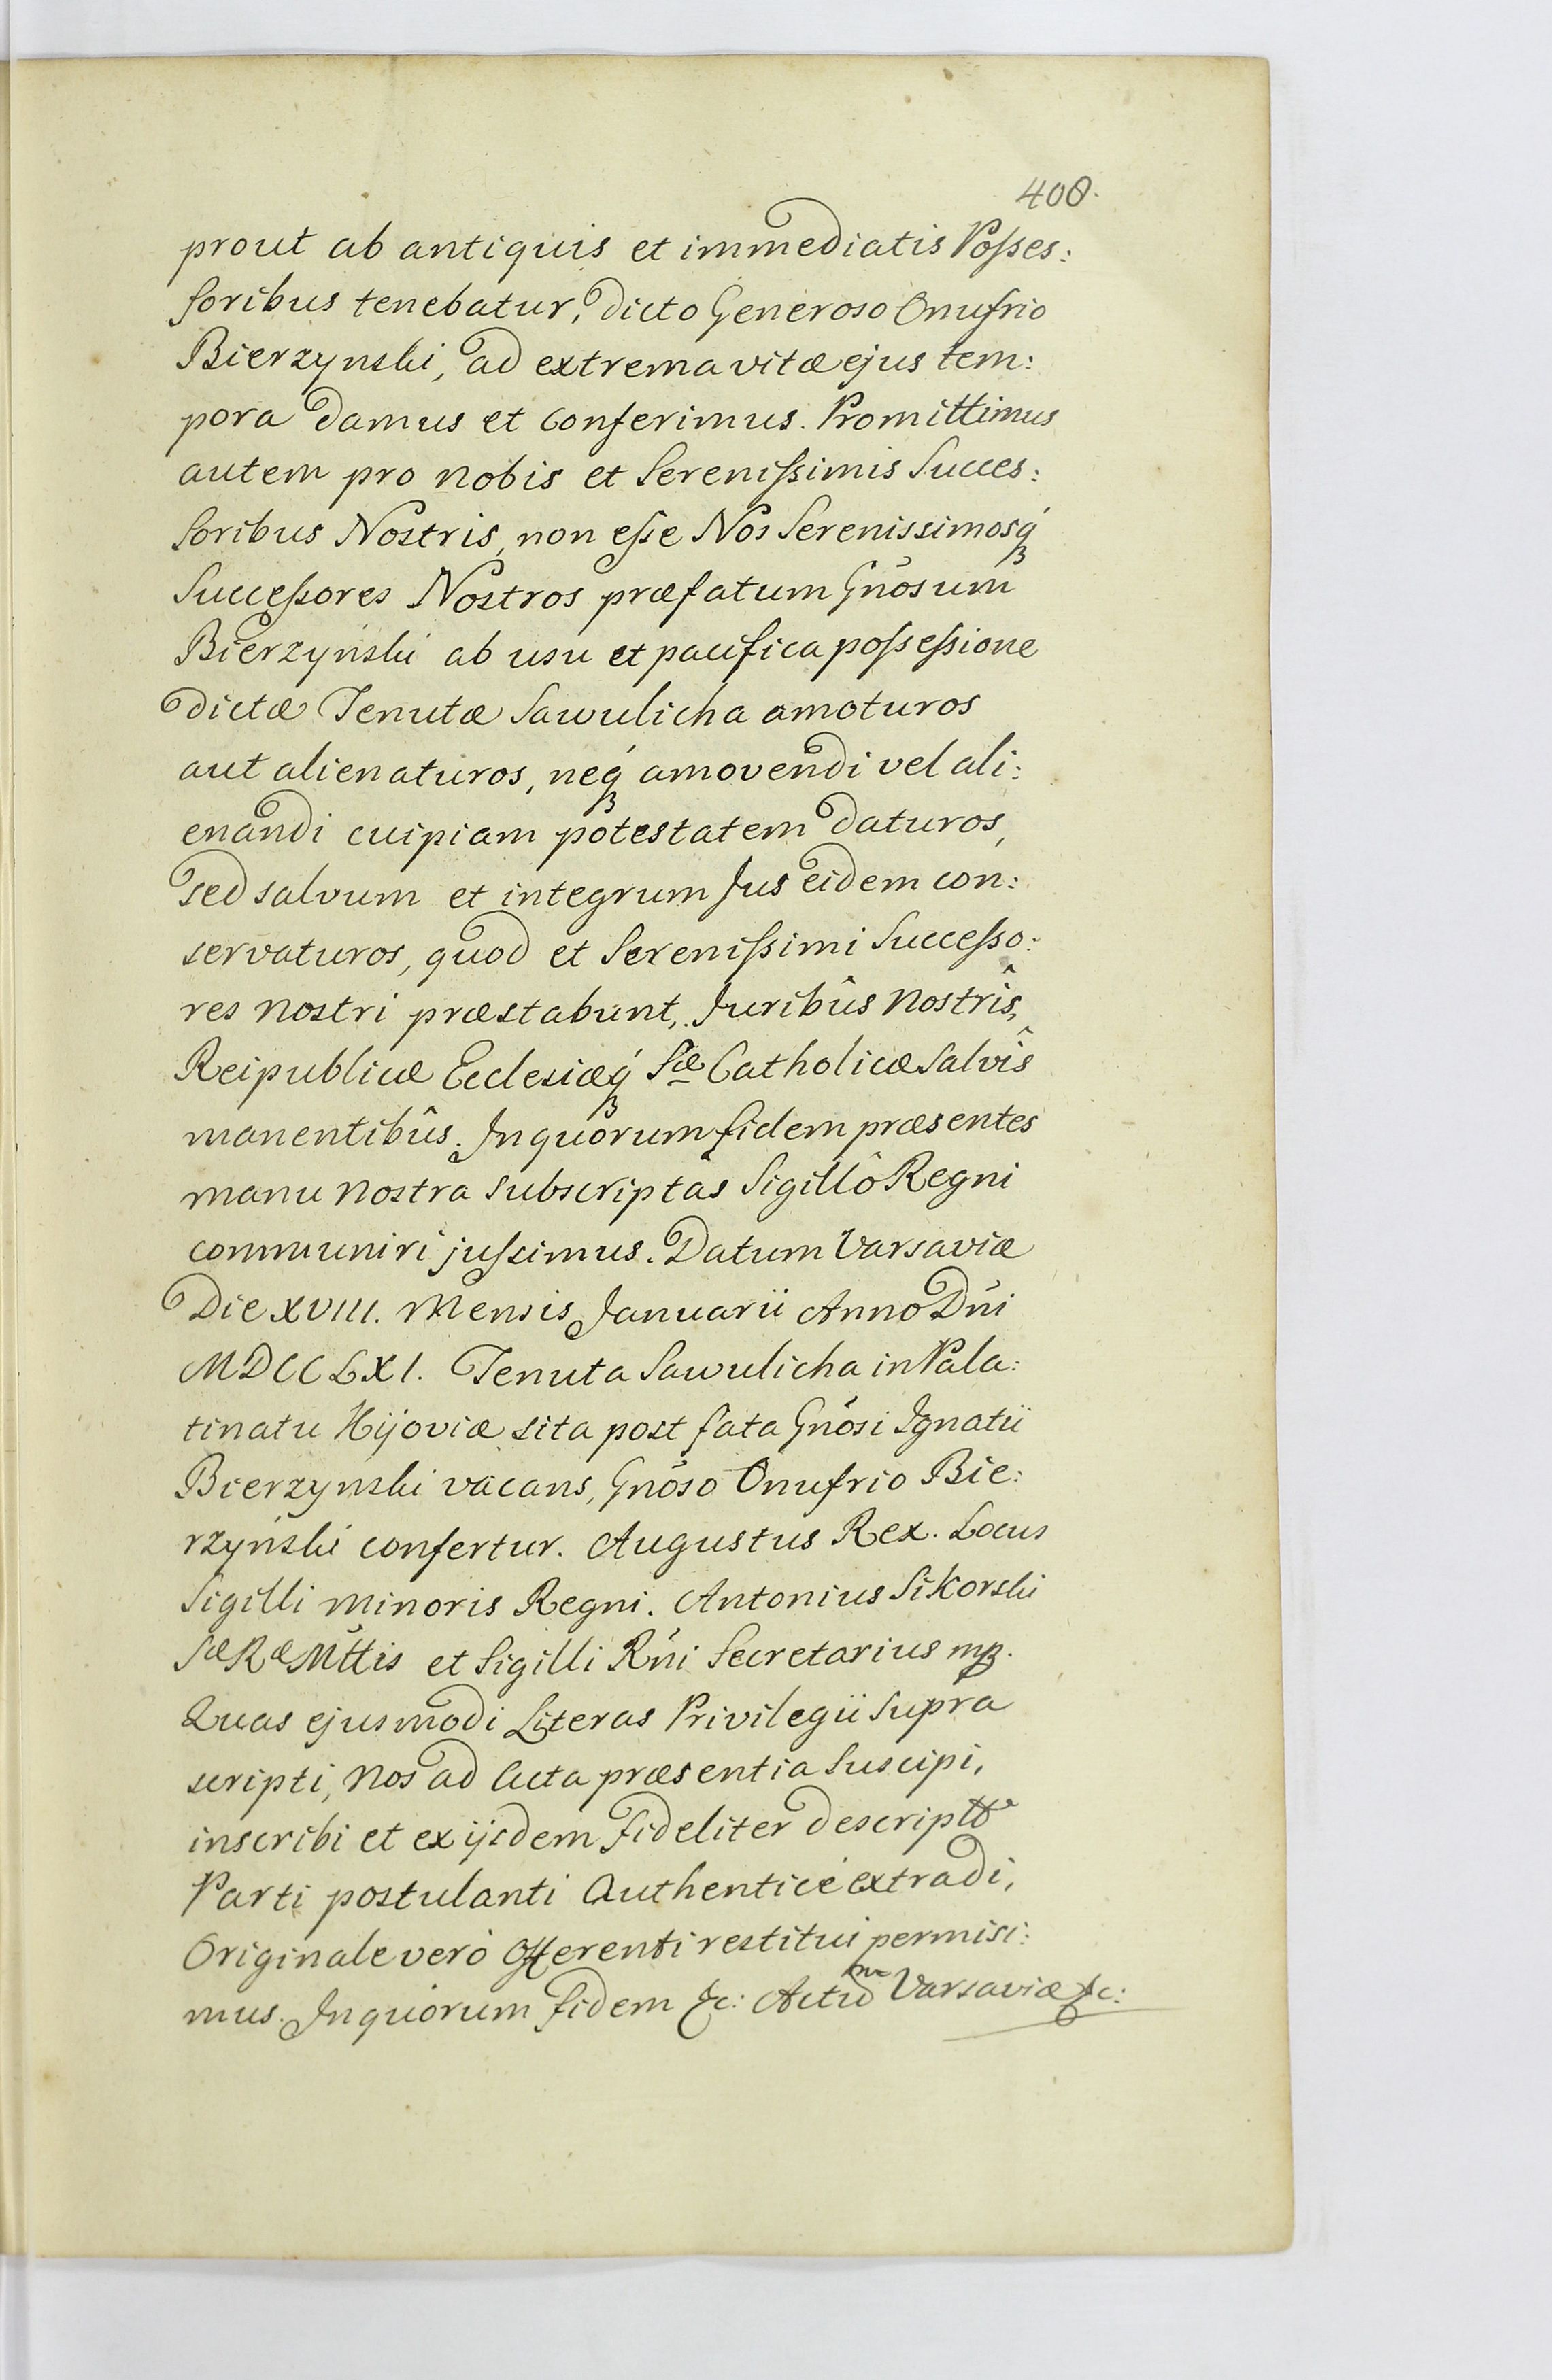 408.
prout ab antiquis et immediatis Posses:
soribus tenebatur, dicto Generoso Onufrio
Bierzynski, ad extrema vitæ ejus tem:
pora damus et conferimus. Promittimus
autem pro nobis et Serenissimis Succes:
soribus Nostris, non esse Nos Serenissimosq́ꝫ
Successores Nostros præfatum Gnôsum
Bierzyński ab usu et pacifica possessione
dictæ Tenutæ Sawulicha amoturos
aut alienaturos, neq́ꝫ amovendi vel ali:
enandi cuipiam potestatem daturos,
sed salvum et integrum Jus eidem con:
servaturos, quod et Serenissimi Successo:
res nostri præstabunt, Juribûs nostrîs,
Reipublicæ Ecclesiæq́ꝫ Sæ Catholicæ salvîs
manentibûs. In quorum fidem præsentes
manu nostra subscriptas Sigillô Regni
communiri jussimus. Datum Varsaviæ
Die XVIII. Mensis Januarii Anno Dńi
MDCCLXI. Tenuta Sawulicha in Pala:
tinatu Kijoviæ sita post fata Gnôsi Ignatii
Bierzynski vacans, Gnôso Onufrio Bie:
rzyński confertur. Augustus Rex. Locus
Sigilli minoris Regni. Antonius Sikorski
Sæ Ræ Mttis et Sigilli Rńi Secretarius mp.
Quas ejusmodi Literas Privilegii supra
scripti, Nos ad Acta præsentia suscipi,
inscribi et ex ijsdem fideliter descriptas
Parti postulanti Authenticè extradi,
Originale verò Offerenti restitui permisi:
mus. In quorum fidem &c: Actum Varsaviæ &c: